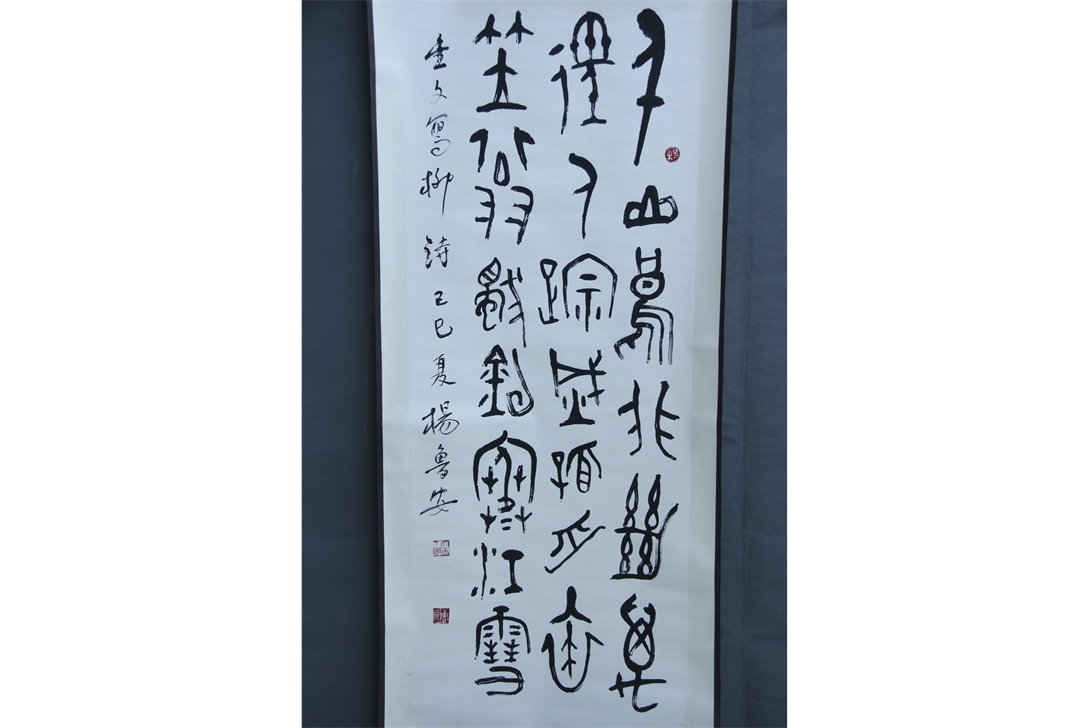 千山鳥飛絕萬
徑人踪滅孤舟蓑
笠翁獨釣寒江雪
金文寫柳詩 己巳夏 楊魯安